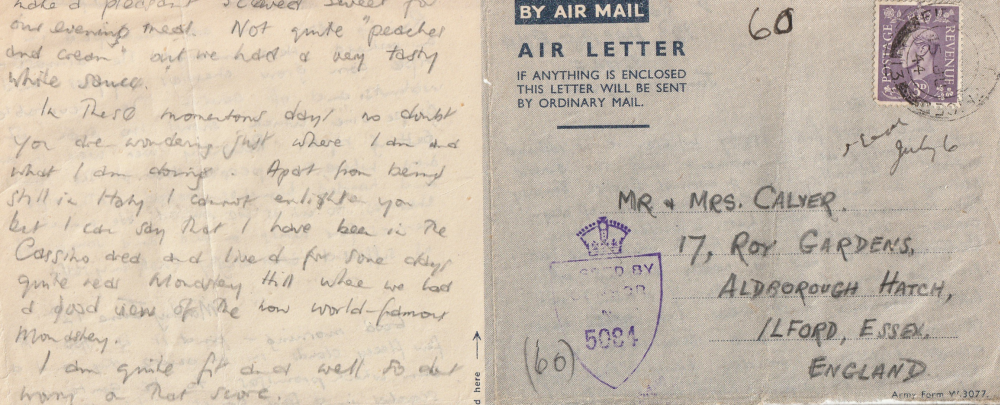 make a pleasant stewed sweet for
our evening meal. Not quite "peaches
and cream" but we had a very tasty
white sauce.
In these momentous days no doubt
you are wondering just where I am and
what I am doing. Apart from being
still in Italy I cannot enlighten you
but I can say that I have been in the
Cassino area and lived for some days
quite near Monastery Hill where we had
a good view of the now world-famous
Monastery.
I am quite fit and well so don't
worry on that score.
d here
BY AIR MAIL
AIR LETTER
IF ANYTHING IS ENCLOSED
THIS LETTER WILL BE SENT
BY ORDINARY MAIL.
60
POSTAGE REVENUE
3D
July 6
MR & MRS. CALVER.
17, ROY GARDENS,
ALDBOROUGH HATCH,
ILFORD, ESSEX.
ENGLAND
PASSED BY
CENSOR
5084
(60)
Army Form W 3077.